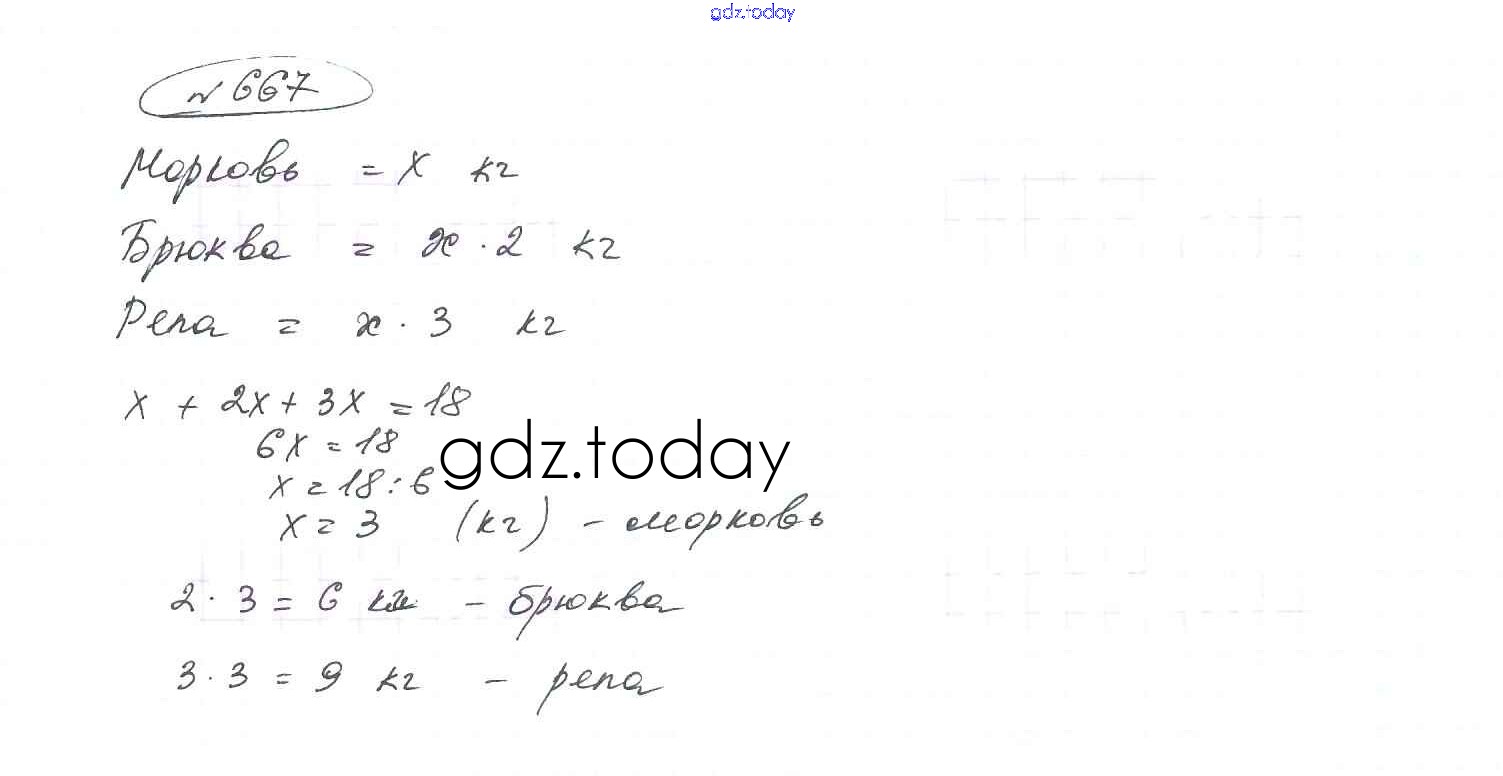 gdz.today
№ 667
Морковь = x кг
Брюква = x · 2 кг
Репа = x · 3 кг
x + 2x + 3x = 18
6x = 18
gdz.today
x = 18 : 6
x = 3 (кг) - морковь
2 · 3 = 6 кг - брюква
3 · 3 = 9 кг - репа